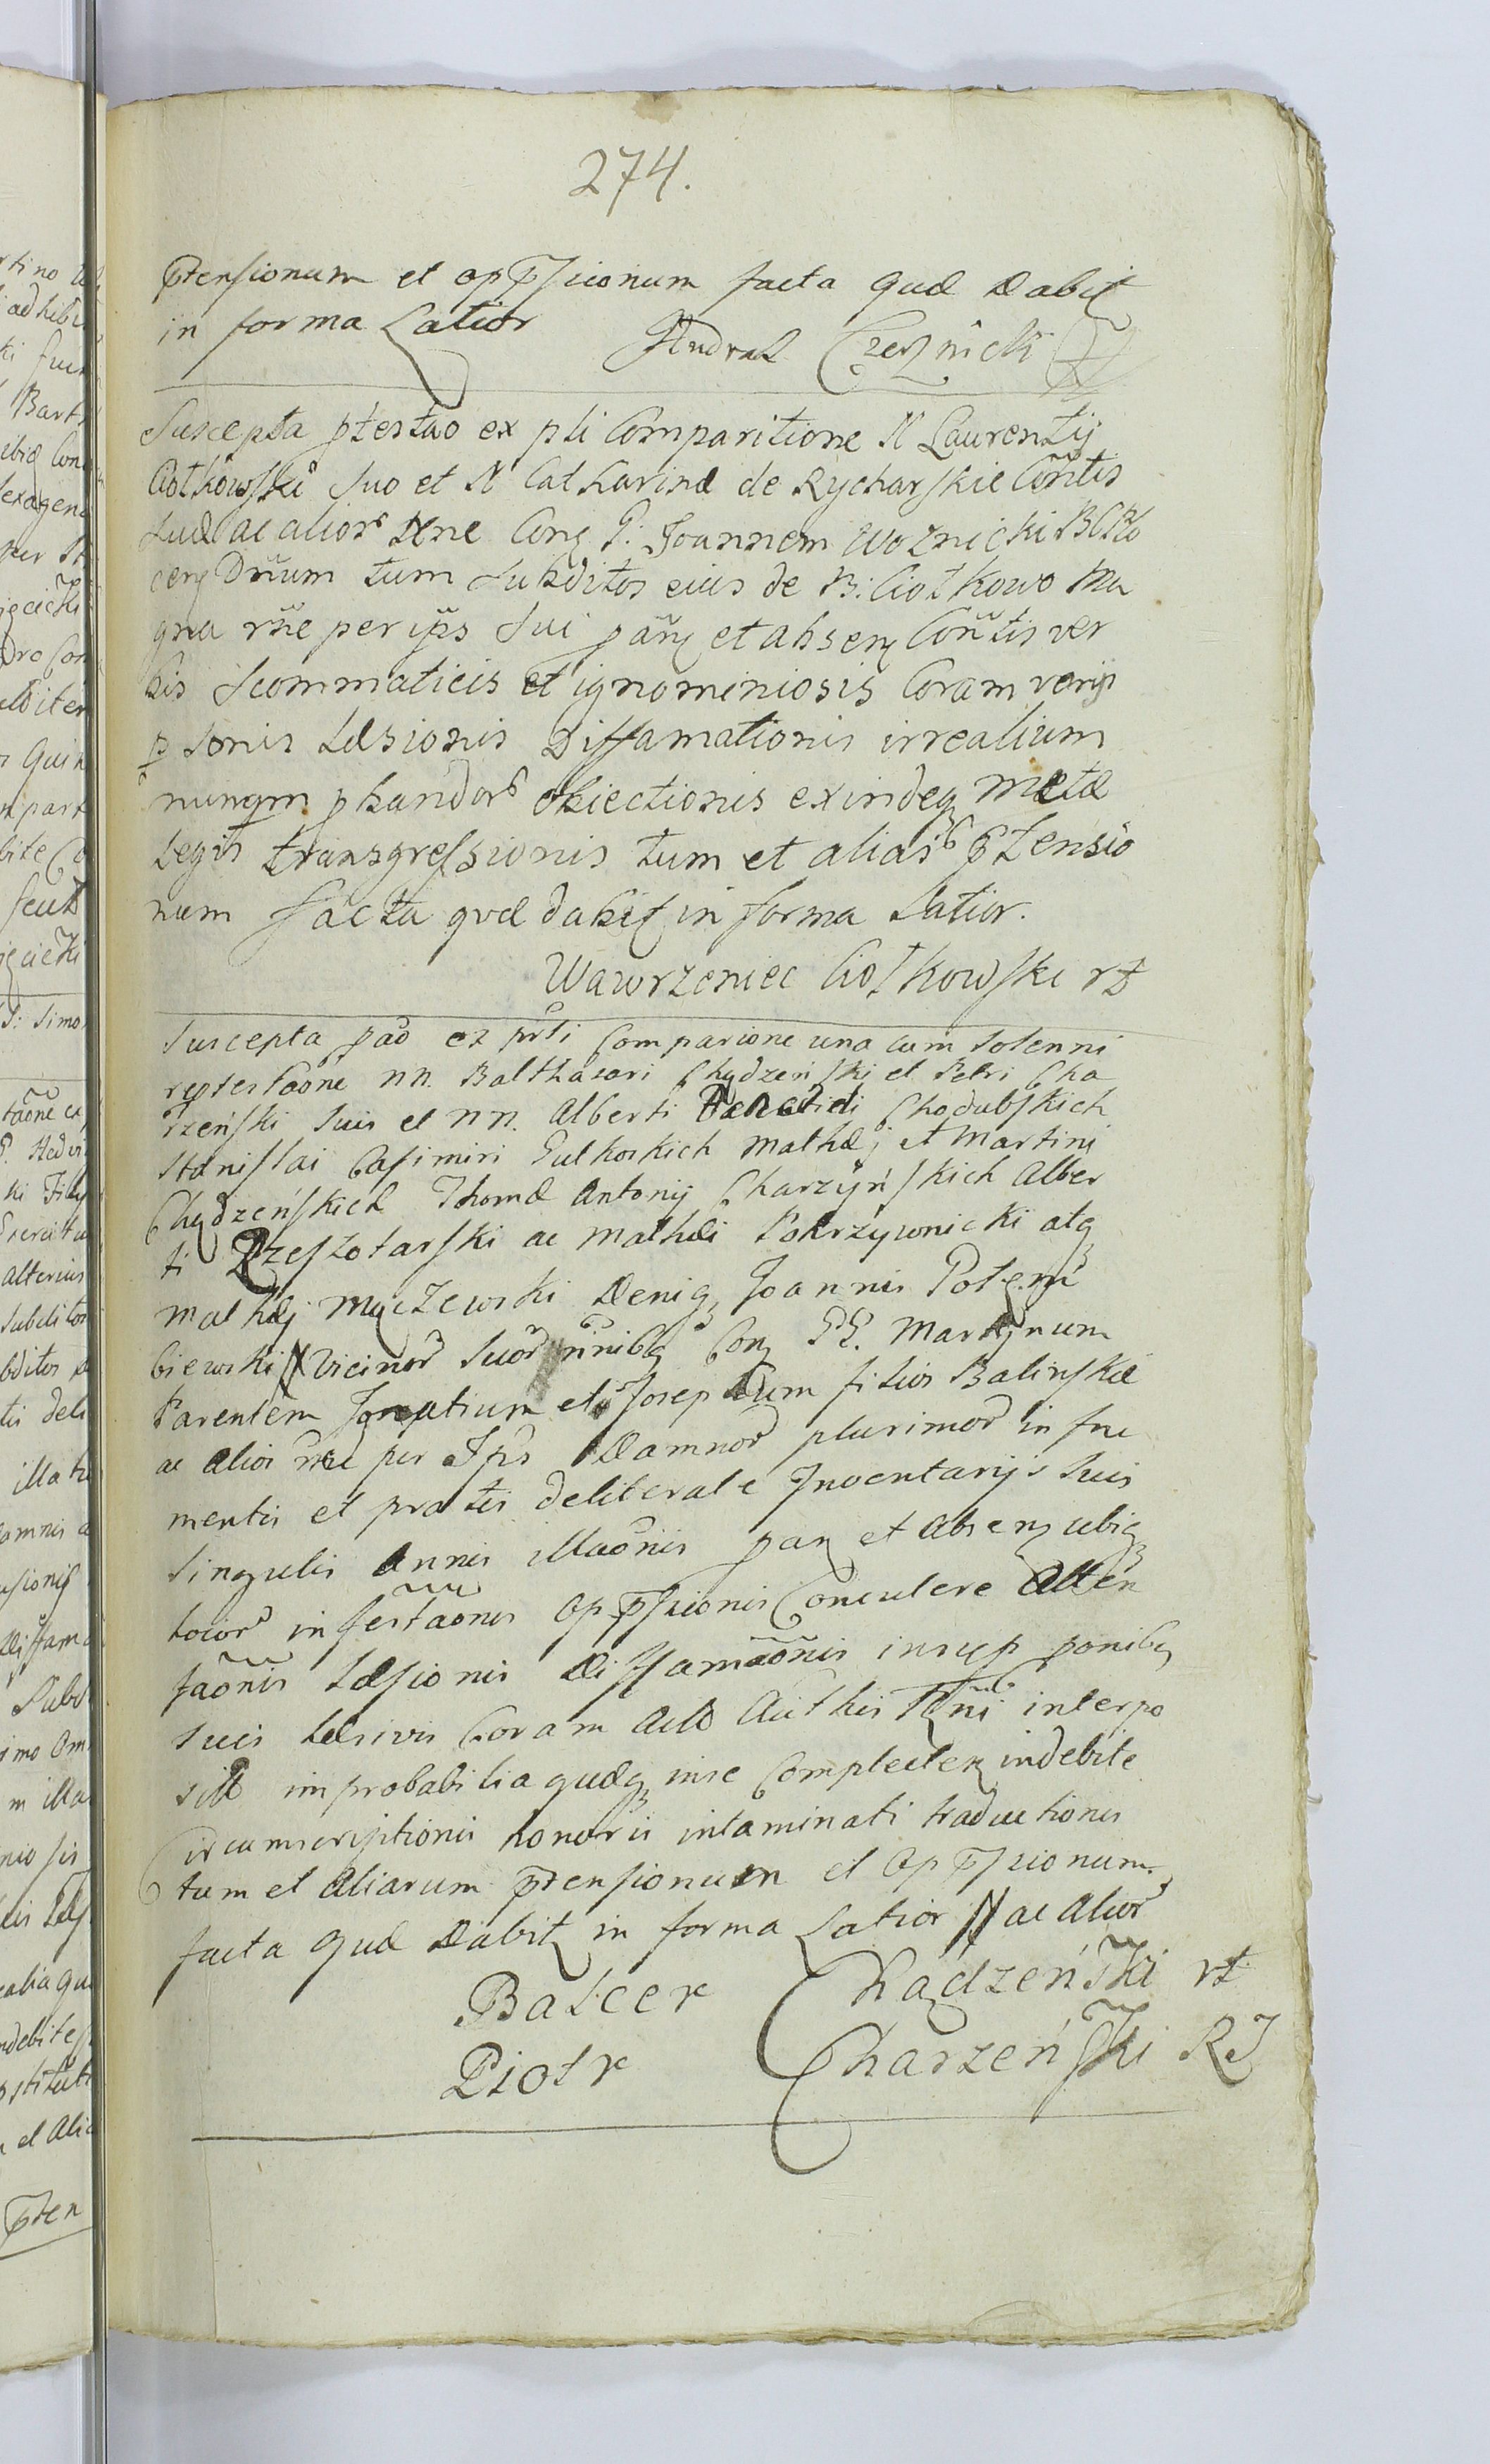 274.
ptensionum et opp̄sionum facta quæ dabit
in forma Latior Czesnicki
Suscepta ptestao ex pti Comparitione N Laurentij
Ciotkowski suo et N Catharinæ de Rycharskie Con̄tis
suæ ac alior Nne Conq G. Joannem Woznicki BCPło
cen Dn̄um tum subditos eius de B: Ciotkowo Ma
gna rn̄e per ip̄s sui pan̄ et absen Con̄tis ver
bis scommaticis et ignominiosis Coram varijs
psonis Læsionis Diffamationis irrealium
nunqm pbandor obiectionis exindeq metæ
Legis transgressionis tum et aliar ptensio
num facta quæ dabit in forma Latior.
Wawrzeniec Ciotkowski rt
Suscepta pao ex prti Comparione una cum solenni
reptestaone nn. Balthasari Chądzeński et Petri Cha
rzeński suis et nn. Alberti Benedicti Chodubskich
Stanislai Casimiri Gutkoskich Mathæj et Martini
Chądzeńskich Thomæ Antonij Charzyńskich Alber
ti Rzeszotarski ac Mathæi Pokrzywnicki atq
Mathæj Mączewski Deniq Joannis Potem̄
biewski // Vicinor suor nn̄ibq Conq GG. Martinum
Parentem Ignatium et Josephum filios Balinskie
ac alios rn̄e per Ip̄s Damnor plurimor in fru
mentis et pratis deliberate Inventarijs suis
singulis Annis illaōnis pan et Absen ubiq
locor infestaōnis opp̄sionis Conculcæ Atten
taōnis Læsionis Diffamaōnis in ponibq
suis læsivis Coram Actis Authen interpo
sit improbabilia quæq in se Complecten indebite
Circumscriptionis honoris intaminati traductionis
tum et Aliarum ptensionum et opp̄sionum
facta quæ Dabit in forma Latior // ac Alior
Balcer Chądzeński rt
Piotr Charzeński RJ